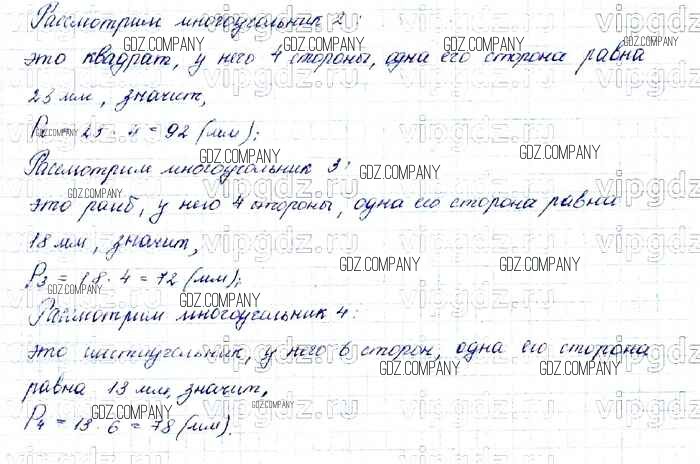 Рассмотрим многоугольник 2:
это квадрат, у него 4 стороны, одна его сторона равна
23 мм, значит,
P₂ = 23 · 4 = 92 (мм);
Рассмотрим многоугольник 3:
это ромб, у него 4 стороны, одна его сторона равна
18 мм, значит,
P₃ = 18 · 4 = 72 (мм);
Рассмотрим многоугольник 4:
это шестиугольник, у него 6 сторон, одна его сторона
равна 13 мм, значит,
P₄ = 13 · 6 = 78 (мм).